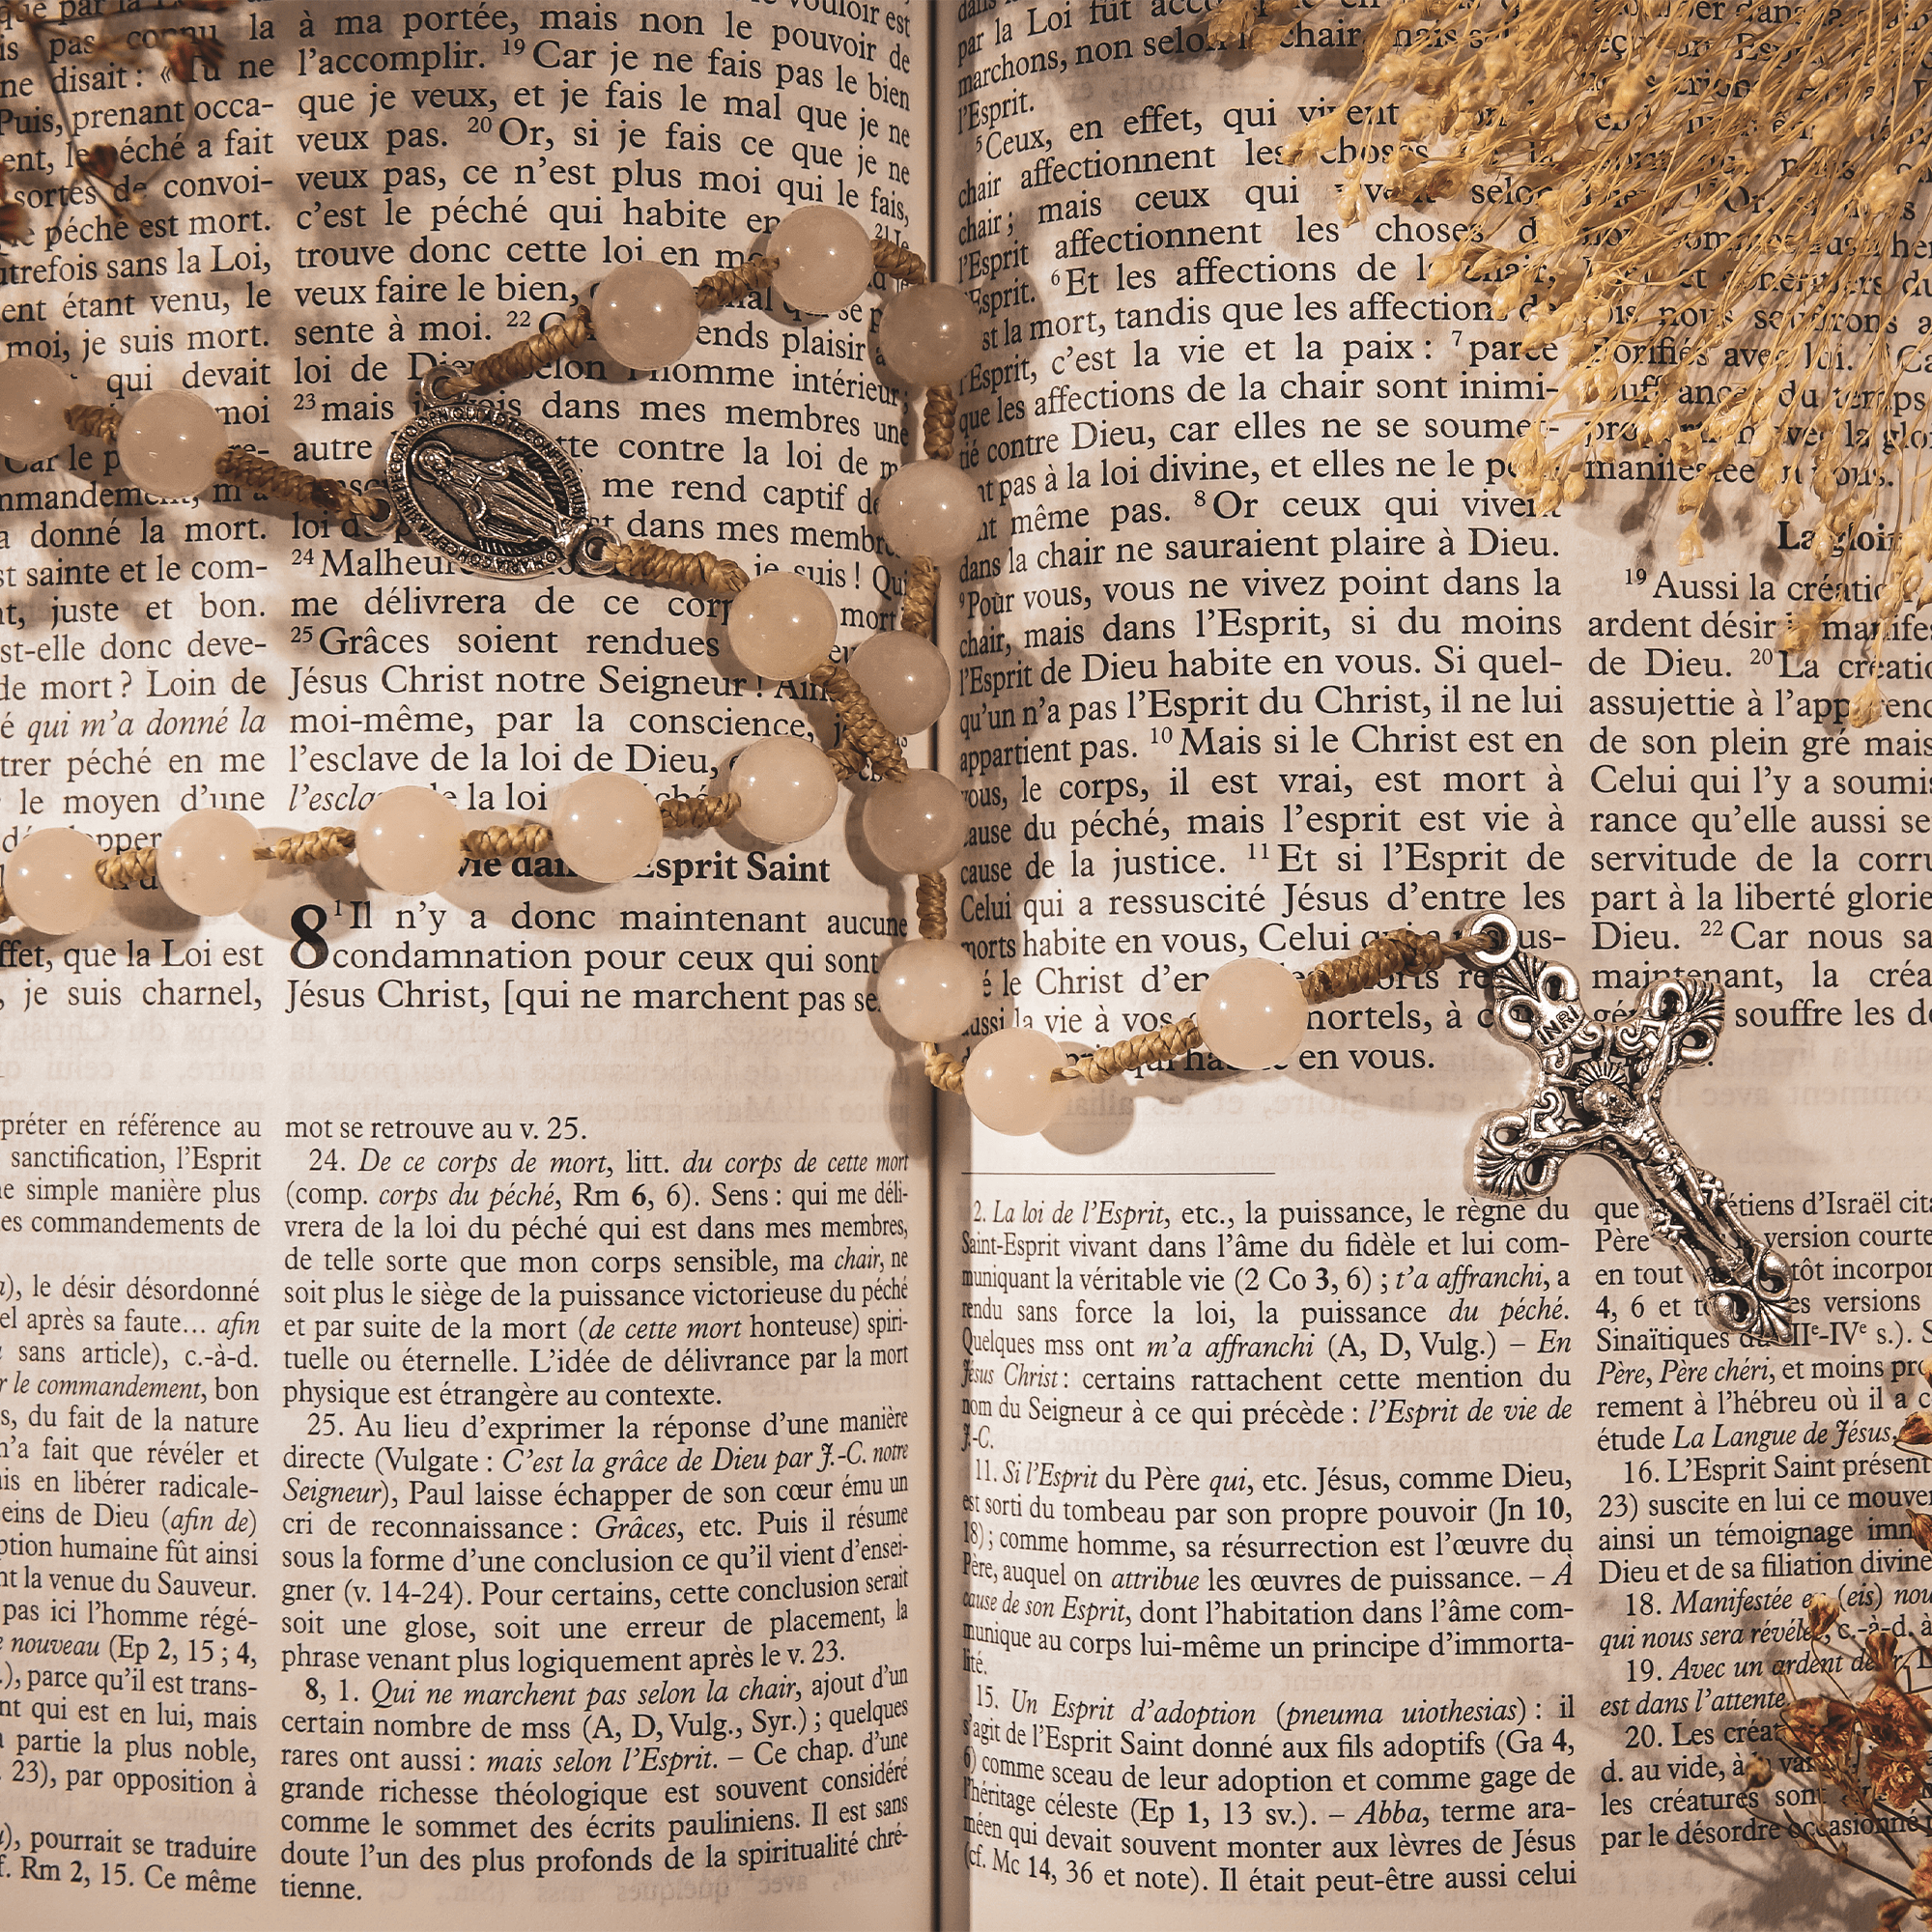 que par la
is pas connu la
ne disait : « Tu ne
Puis, prenant occa-
ent, le péché a fait
sortes de convoi-
le péché est mort.
utrefois sans la Loi,
ent étant venu, le
moi, je suis mort.
qui devait
moi
Car le
mmandement, m'a
a donné la mort.
st sainte et le com-
nt, juste et bon.
st-elle donc deve-
de mort ? Loin de
é qui m'a donné la
trer péché en me
le moyen d'une
ffet, que la Loi est
, je suis charnel,
vouloir est
à ma portée, mais non le pouvoir de
l'accomplir. 19 Car je ne fais pas le bien
que je veux, et je fais le mal que je ne
veux pas. 20 Or, si je fais ce que je ne
veux pas, ce n'est plus moi qui le fais,
c'est le péché qui habite en 21 Je
trouve donc cette loi en
veux faire le bien,
sente à moi. 22 ends plaisir
loi de Dieu selon l'homme intérieur ;
23 mais je vois dans mes membres une
autre tte contre la loi de
me rend captif de
loi dans mes membres
24 Malheureux je suis ! Qui
me délivrera de ce corps mort
25 Grâces soient rendues
Jésus Christ notre Seigneur ! Ainsi
moi-même, par la conscience,
l'esclave de la loi de Dieu,
l'esclave de la loi
vie dans l'Esprit Saint
8 1 Il n'y a donc maintenant aucune
condamnation pour ceux qui sont
Jésus Christ, [qui ne marchent pas se
par la Loi fût
marchons, non selon la chair, mais
l'Esprit.
5 Ceux, en effet, qui vivent
chair affectionnent les choses
chair ; mais ceux qui vivent selon
l'Esprit affectionnent les choses
l'Esprit. 6 Et les affections de la chair,
st la mort, tandis que les affections de
l'Esprit, c'est la vie et la paix : 7 parce
que les affections de la chair sont inimi-
tié contre Dieu, car elles ne se soumet-
nt pas à la loi divine, et elles ne le
nt même pas. 8 Or ceux qui vivent
dans la chair ne sauraient plaire à Dieu.
9 Pour vous, vous ne vivez point dans la
chair, mais dans l'Esprit, si du moins
l'Esprit de Dieu habite en vous. Si quel-
qu'un n'a pas l'Esprit du Christ, il ne lui
appartient pas. 10 Mais si le Christ est en
vous, le corps, il est vrai, est mort à
cause du péché, mais l'esprit est vie à
cause de la justice. 11 Et si l'Esprit de
Celui qui a ressuscité Jésus d'entre les
morts habite en vous, Celui qui a
é le Christ d'en
aussi la vie à vos mortels, à
en vous.
La gloire
19 Aussi la création
ardent désir manifes
de Dieu. 20 La création
assujettie à l'apparence
de son plein gré mais
Celui qui l'y a soumis
rance qu'elle aussi se
servitude de la corru
part à la liberté glorie
Dieu. 22 Car nous sa
maintenant, la créa
souffre les do
INRI
préter en référence au
sanctification, l'Esprit
ne simple manière plus
es commandements de
a), le désir désordonné
el après sa faute... afin
sans article), c.-à-d.
r le commandement, bon
s, du fait de la nature
n'a fait que révéler et
is en libérer radicale-
seins de Dieu (afin de)
ption humaine fût ainsi
nt la venue du Sauveur.
pas ici l'homme régé-
e nouveau (Ep 2, 15 ; 4,
.), parce qu'il est trans-
nt qui est en lui, mais
partie la plus noble,
. 23), par opposition à
), pourrait se traduire
f. Rm 2, 15. Ce même
mot se retrouve au v. 25.
24. De ce corps de mort, litt. du corps de cette mort
(comp. corps du péché, Rm 6, 6). Sens : qui me déli-
vrera de la loi du péché qui est dans mes membres,
de telle sorte que mon corps sensible, ma chair, ne
soit plus le siège de la puissance victorieuse du péché
et par suite de la mort (de cette mort honteuse) spiri-
tuelle ou éternelle. L'idée de délivrance par la mort
physique est étrangère au contexte.
25. Au lieu d'exprimer la réponse d'une manière
directe (Vulgate : C'est la grâce de Dieu par J.-C. notre
Seigneur), Paul laisse échapper de son cœur ému un
cri de reconnaissance : Grâces, etc. Puis il résume
sous la forme d'une conclusion ce qu'il vient d'ensei-
gner (v. 14-24). Pour certains, cette conclusion serait
soit une glose, soit une erreur de placement, la
phrase venant plus logiquement après le v. 23.
8, 1. Qui ne marchent pas selon la chair, ajout d'un
certain nombre de mss (A, D, Vulg., Syr.) ; quelques
rares ont aussi : mais selon l'Esprit. – Ce chap. d'une
grande richesse théologique est souvent considéré
comme le sommet des écrits pauliniens. Il est sans
doute l'un des plus profonds de la spiritualité chré-
tienne.
2. La loi de l'Esprit, etc., la puissance, le règne du
Saint-Esprit vivant dans l'âme du fidèle et lui com-
muniquant la véritable vie (2 Co 3, 6) ; t'a affranchi, a
rendu sans force la loi, la puissance du péché.
Quelques mss ont m'a affranchi (A, D, Vulg.) – En
Jésus Christ : certains rattachent cette mention du
nom du Seigneur à ce qui précède : l'Esprit de vie de
J.-C.
11. Si l'Esprit du Père qui, etc. Jésus, comme Dieu,
est sorti du tombeau par son propre pouvoir (Jn 10,
18) ; comme homme, sa résurrection est l'œuvre du
Père, auquel on attribue les œuvres de puissance. – À
cause de son Esprit, dont l'habitation dans l'âme com-
munique au corps lui-même un principe d'immorta-
lité.
15. Un Esprit d'adoption (pneuma uiothesias) : il
s'agit de l'Esprit Saint donné aux fils adoptifs (Ga 4,
6) comme sceau de leur adoption et comme gage de
l'héritage céleste (Ep 1, 13 sv.). – Abba, terme ara-
méen qui devait souvent monter aux lèvres de Jésus
(cf. Mc 14, 36 et note). Il était peut-être aussi celui
que tiens d'Israël cita
Père version courte
en tout tôt incorpor
4, 6 et es versions
Sinaïtiques du IIe-IVe s.). S
Père, Père chéri, et moins pro
rement à l'hébreu où il a c
étude La Langue de Jésus,
16. L'Esprit Saint présent
23) suscite en lui ce mouve
ainsi un témoignage imm
Dieu et de sa filiation divine
18. Manifestée en (eis) nou
qui nous sera révélée, c.-à-d. à
19. Avec un ardent désir.
est dans l'attente
20. Les créat
d. au vide, à la van
les créatures sont
par le désordre occasionné